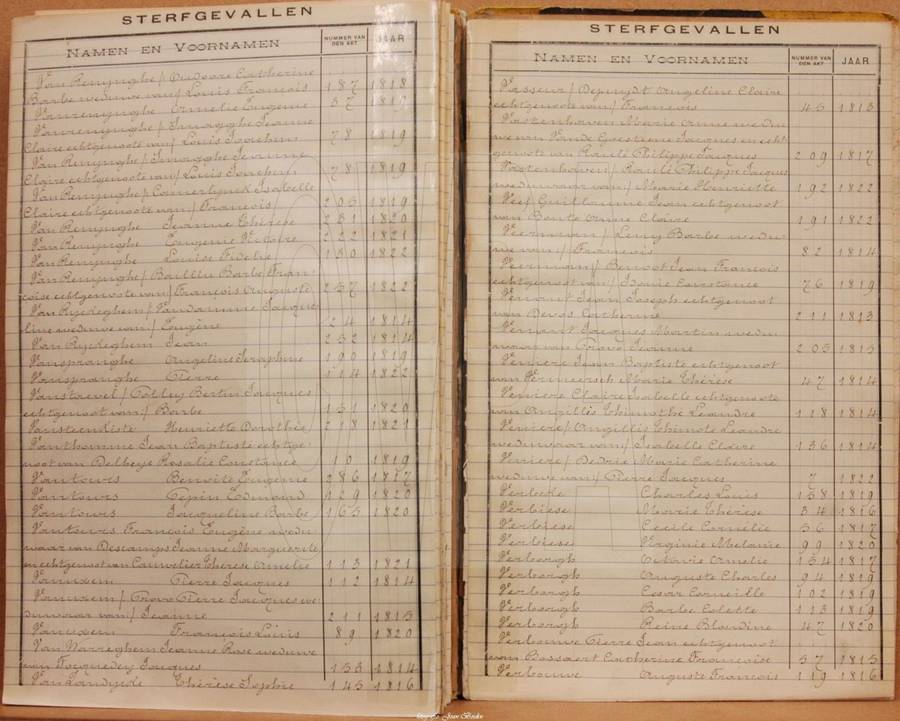 STERFGEVALLEN
NAMEN EN VOORNAMEN NUMMER VAN DEN AKT JAAR
Van Remynghe / Oudoore Catherine
Barbe weduwe van / Louis François 187 1818
Vanremynghe Amelie Eugenie 37 1819
Vanremynghe / Jeanne
Claire echtgenoote van / Louis Joachim 78 1819
Van Remynghe /
Claire echtgenoote van / Louis Joachim 78 1819
Van Remynghe / Isabelle
Claire echtgenoote van / François 205 1819
Van Remynghe Jeanne Thérèse 231 1820
Van Remynghe Eugenie Victoire 222 1821
Van Remynghe Louise Fidelie 130 1822
Van Remynghe / Boullu Barbe Fran-
çoise echtgenoote van / François Auguste 237 1822
Van Ryckeghem / Vandamme Jacque
line weduwe van / Eugène 24 1814
Van Ryckeghem Jean 232 1814
Vanspranghe Angeline Seraphine 190 1819
Vanspranghe Pierre 114 1822
Vanstavel / Bertin Jacques
echtgenoot van / Barbe 131 1820
Vansteenkiste Henriette Dorothée 218 1821
Vanthomme Jean Baptiste echtge-
noot van Delheye Rosalie Constance 10 1819
Vantours Benoite Eugénie 286 1817
Vantours Pépin Edmond 129 1820
Vantours Jacqueline Barbe 163 1820
Vantours François Eugène wedu
waar van Descamps Jeanne Marguerite
en echtgenoot van Cauwelier Thérèse Amelie 113 1821
Vanuxem Pierre Jacques 112 1814
Vanuxem / Pierre Jacques we-
duwaar van / Jeanne 211 1815
Vanuxem François Louis 89 1820
Van Warreghem Jeanne Rose weduwe
van Jacques 133 1814
Van Zandycke Thérèse Sophie 143 1816
STERFGEVALLEN
NAMEN EN VOORNAMEN NUMMER VAN DEN AKT JAAR
Vasseur / Depuydt Angeline Claire
echtgenoote van / François 43 1813
Vastenhaven Marie Anne wedu
we van Vande Goesteene Jacques en echt
genoote van Raulé Philippe Jacques 209 1817
Vastenhaven / Raulé Philippe Jacques
weduwaar van / Marie Henriette 192 1822
Veef Guillaume Jean echtgenoot
van Bonte Anne Claire 191 1822
Veerman / Leny Barbe wedu
we van / François 82 1814
Veerman / Benoot Jean François
echtgenoot van / Isaure Constance 76 1819
Venant Jean Joseph echtgenoot
van Devos Catherine 211 1813
Venant Jacques Martin wedu
waar van Jeanne 205 1815
Veniere Jean Baptiste echtgenoot
van Vermeersch Marie Thérèse 47 1814
Veniere Claire Isabelle echtgenoote
van Angillis Thimothe Leandre 118 1814
Veniere / Angillis Thimote Leandre
weduwaar van / Isabelle Claire 136 1814
Veniere / Dedrie Marie Catherine
weduwe van / Pierre Jacques 7 1822
Verbeke Charles Louis 138 1819
Verbiese Marie Thérèse 34 1816
Verbiese Cecile Cornélie 36 1817
Verbiese Virginie Melanie 99 1820
Verborgh Octavie Amelie 134 1817
Verborgh Auguste Charles 94 1819
Verborgh Cesar Corneille 102 1819
Verborgh Barbe Colette 113 1819
Verborgh Reine Blondine 47 1820
Verbouwe Pierre Jean echtgenoot
van Bossaert Catherine Françoise 37 1815
Verbouwe Auguste François 119 1816